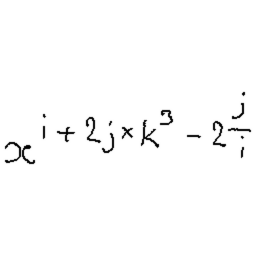 x^{i + 2j × k^3 - 2\frac{j}{i}}